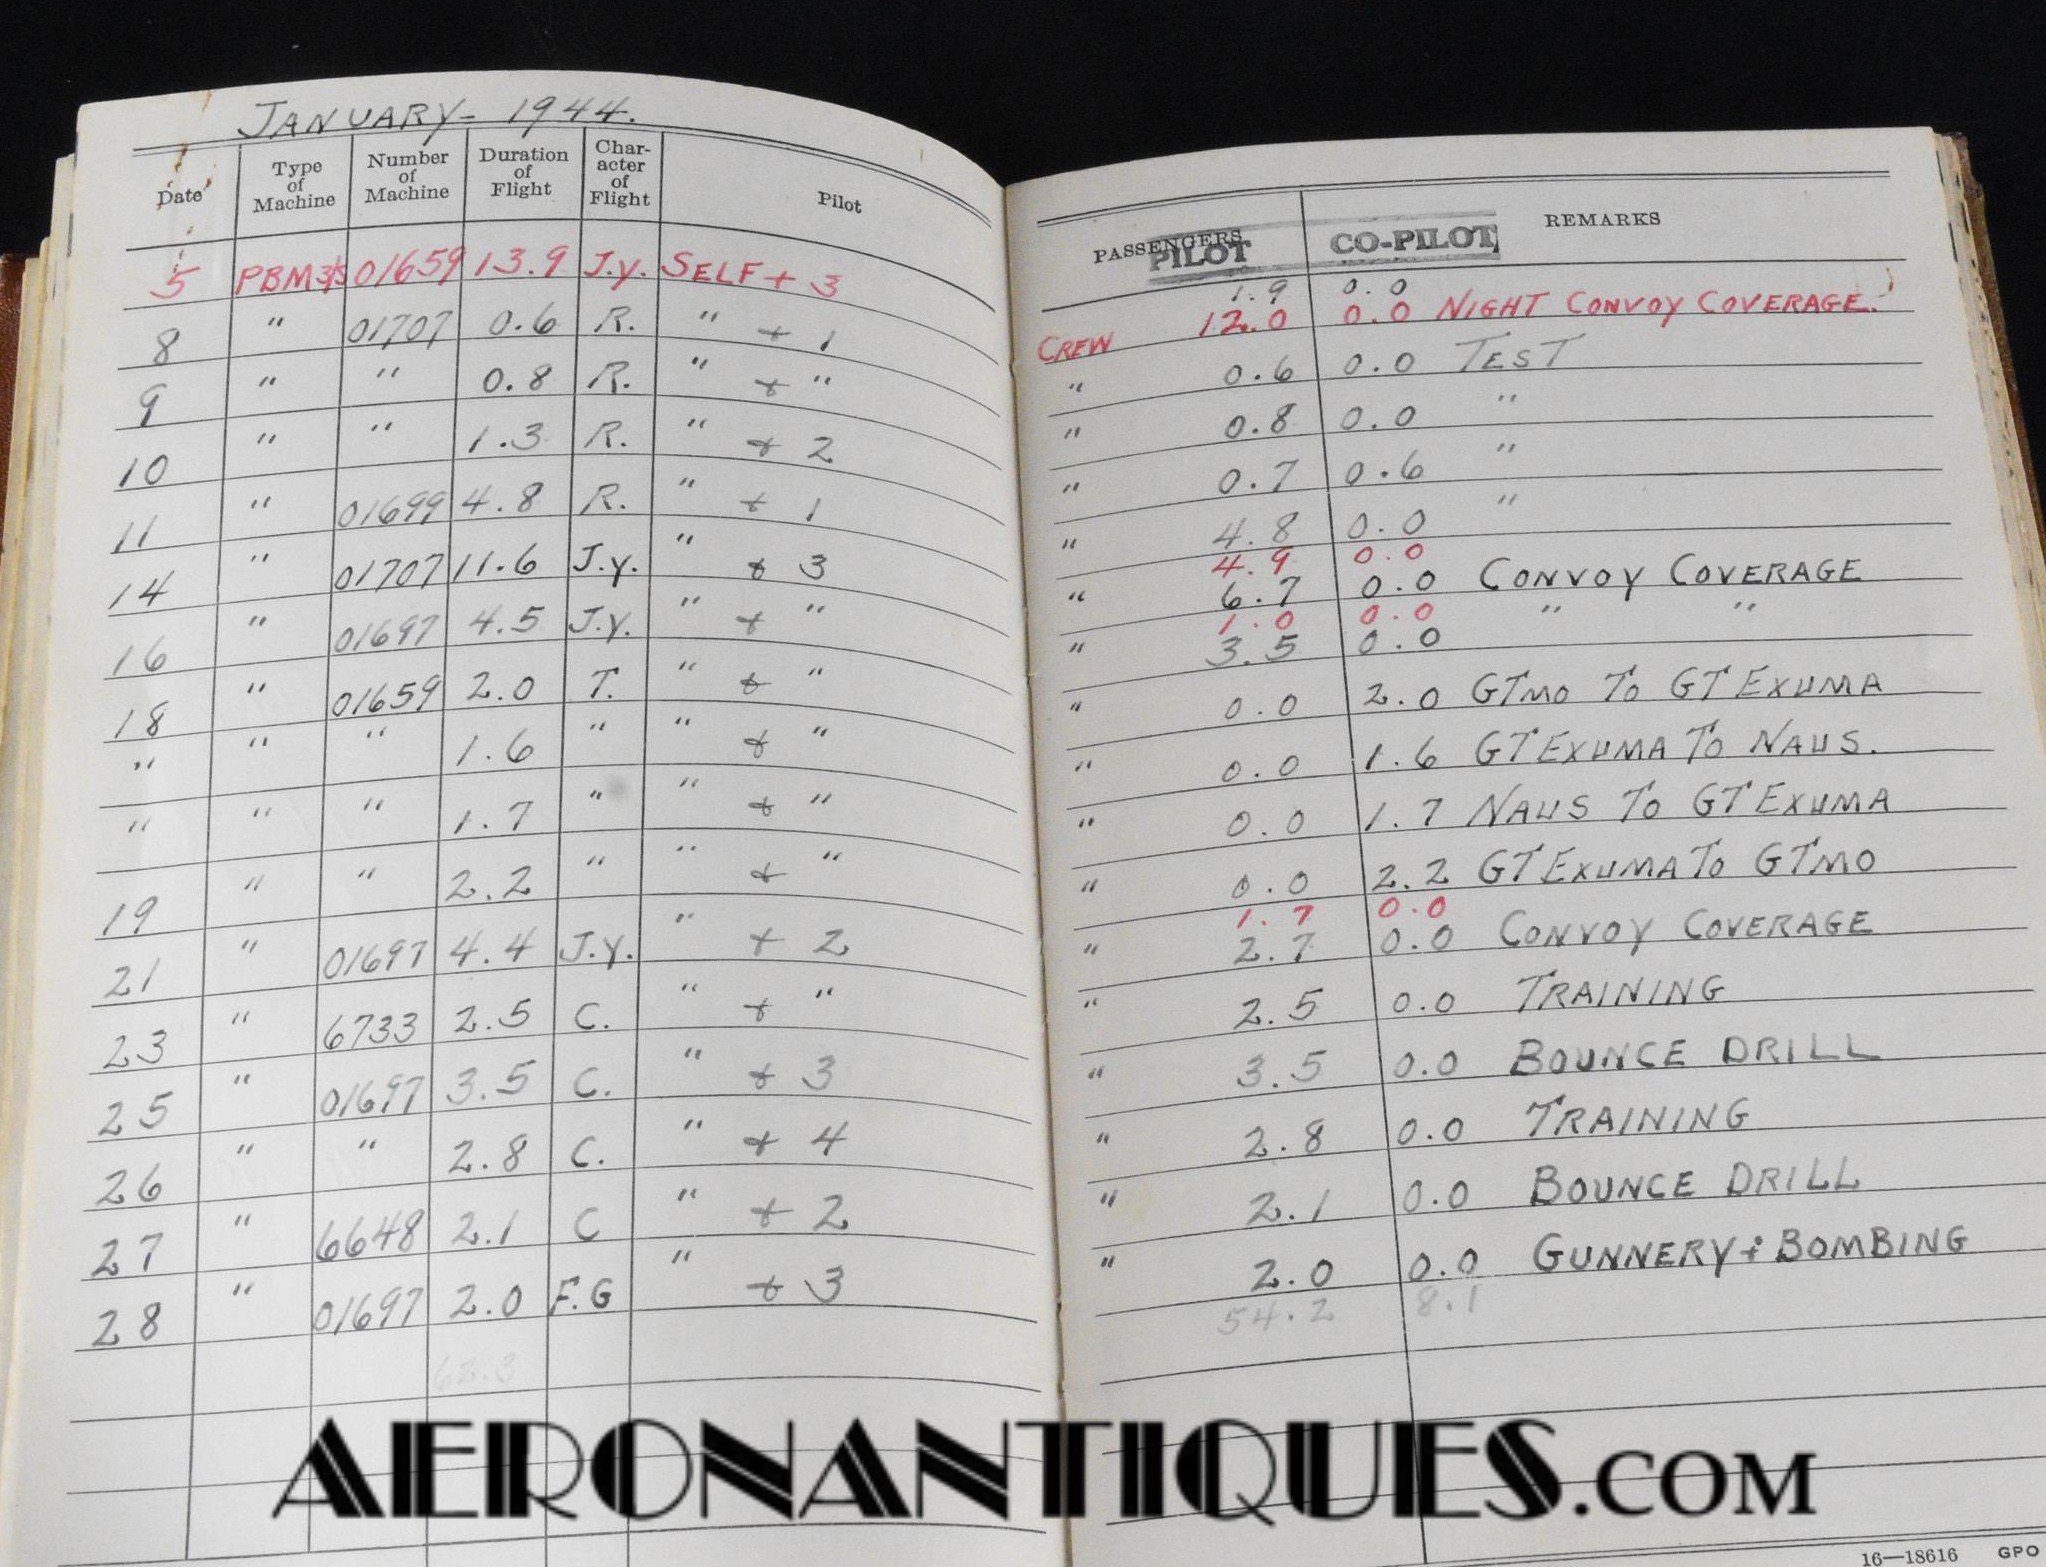 JANUARY - 1944.
Date Type of Machine Number of Machine Duration of Flight Char-acter of Flight Pilot PASSENGERS PILOT CO-PILOT REMARKS
1.9 0.0
5 PBM3S 01659 13.9 J.Y. SELF + 3 CREW 12.0 0.0 NIGHT CONVOY COVERAGE.
8 " 01707 0.6 R. " + 1 " 0.6 0.0 TEST
9 " " 0.8 R. " + " " 0.8 0.0 "
10 " " 1.3 R. " + 2 " 0.7 0.6 "
11 " 01699 4.8 R. " + 1 " 4.8 0.0 "
4.9 0.0
14 " 01707 11.6 J.Y. " + 3 " 6.7 0.0 CONVOY COVERAGE
1.0 0.0
16 " 01697 4.5 J.Y. " + " " 3.5 0.0 " "
18 " 01659 2.0 T. " + " " 0.0 2.0 GTMO TO GT EXUMA
" " " 1.6 " " + " " 0.0 1.6 GT EXUMA TO NAUS.
" " " 1.7 " " + " " 0.0 1.7 NAUS TO GT EXUMA
19 " " 2.2 " " + " " 0.0 2.2 GT EXUMA TO GTMO
1.7 0.0
21 " 01697 4.4 J.Y. " + 2 " 2.7 0.0 CONVOY COVERAGE
23 " 6733 2.5 C. " + " " 2.5 0.0 TRAINING
25 " 01697 3.5 C. " + 3 " 3.5 0.0 BOUNCE DRILL
26 " " 2.8 C. " + 4 " 2.8 0.0 TRAINING
27 " 6648 2.1 C " + 2 " 2.1 0.0 BOUNCE DRILL
28 " 01697 2.0 F.G " + 3 " 2.0 0.0 GUNNERY + BOMBING
62.3 54.2 8.1
AERONANTIQUES.COM
16—18616 GPO